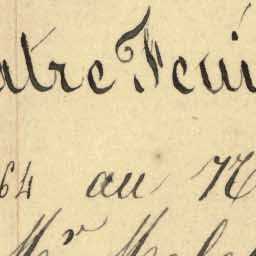 atre Feui
64 au N
Mr Mala